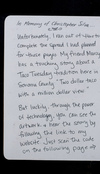 In Memory of Christopher Silva
Unfortunately, I ran out of time to
complete the spread I had planned
for these pages. My friend Maria
has a touching story about a
Taco Tuesday tradition here in
Sonoma County. Two dollar tacos
with a million dollar view.
But luckily, through the power
of technology, you can see the
artwork & hear the story by
following the link to my
website. Just scan the code
on the following page.